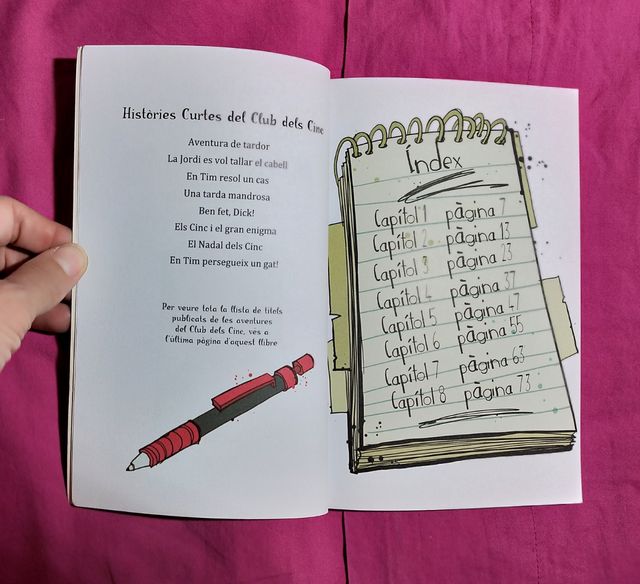 Històries Curtes del Club dels Cinc
Aventura de tardor
La Jordi es vol tallar el cabell
En Tim resol un cas
Una tarda mandrosa
Ben fet, Dick!
Els Cinc i el gran enigma
El Nadal dels Cinc
En Tim persegueix un gat!
Per veure tota la llista de títols
publicats de les aventures
del Club dels Cinc, ves a
l'última pàgina d'aquest llibre
Índex
Capítol 1 pàgina 7
Capítol 2 pàgina 13
Capítol 3 pàgina 23
Capítol 4 pàgina 37
Capítol 5 pàgina 47
Capítol 6 pàgina 55
Capítol 7 pàgina 63
Capítol 8 pàgina 73